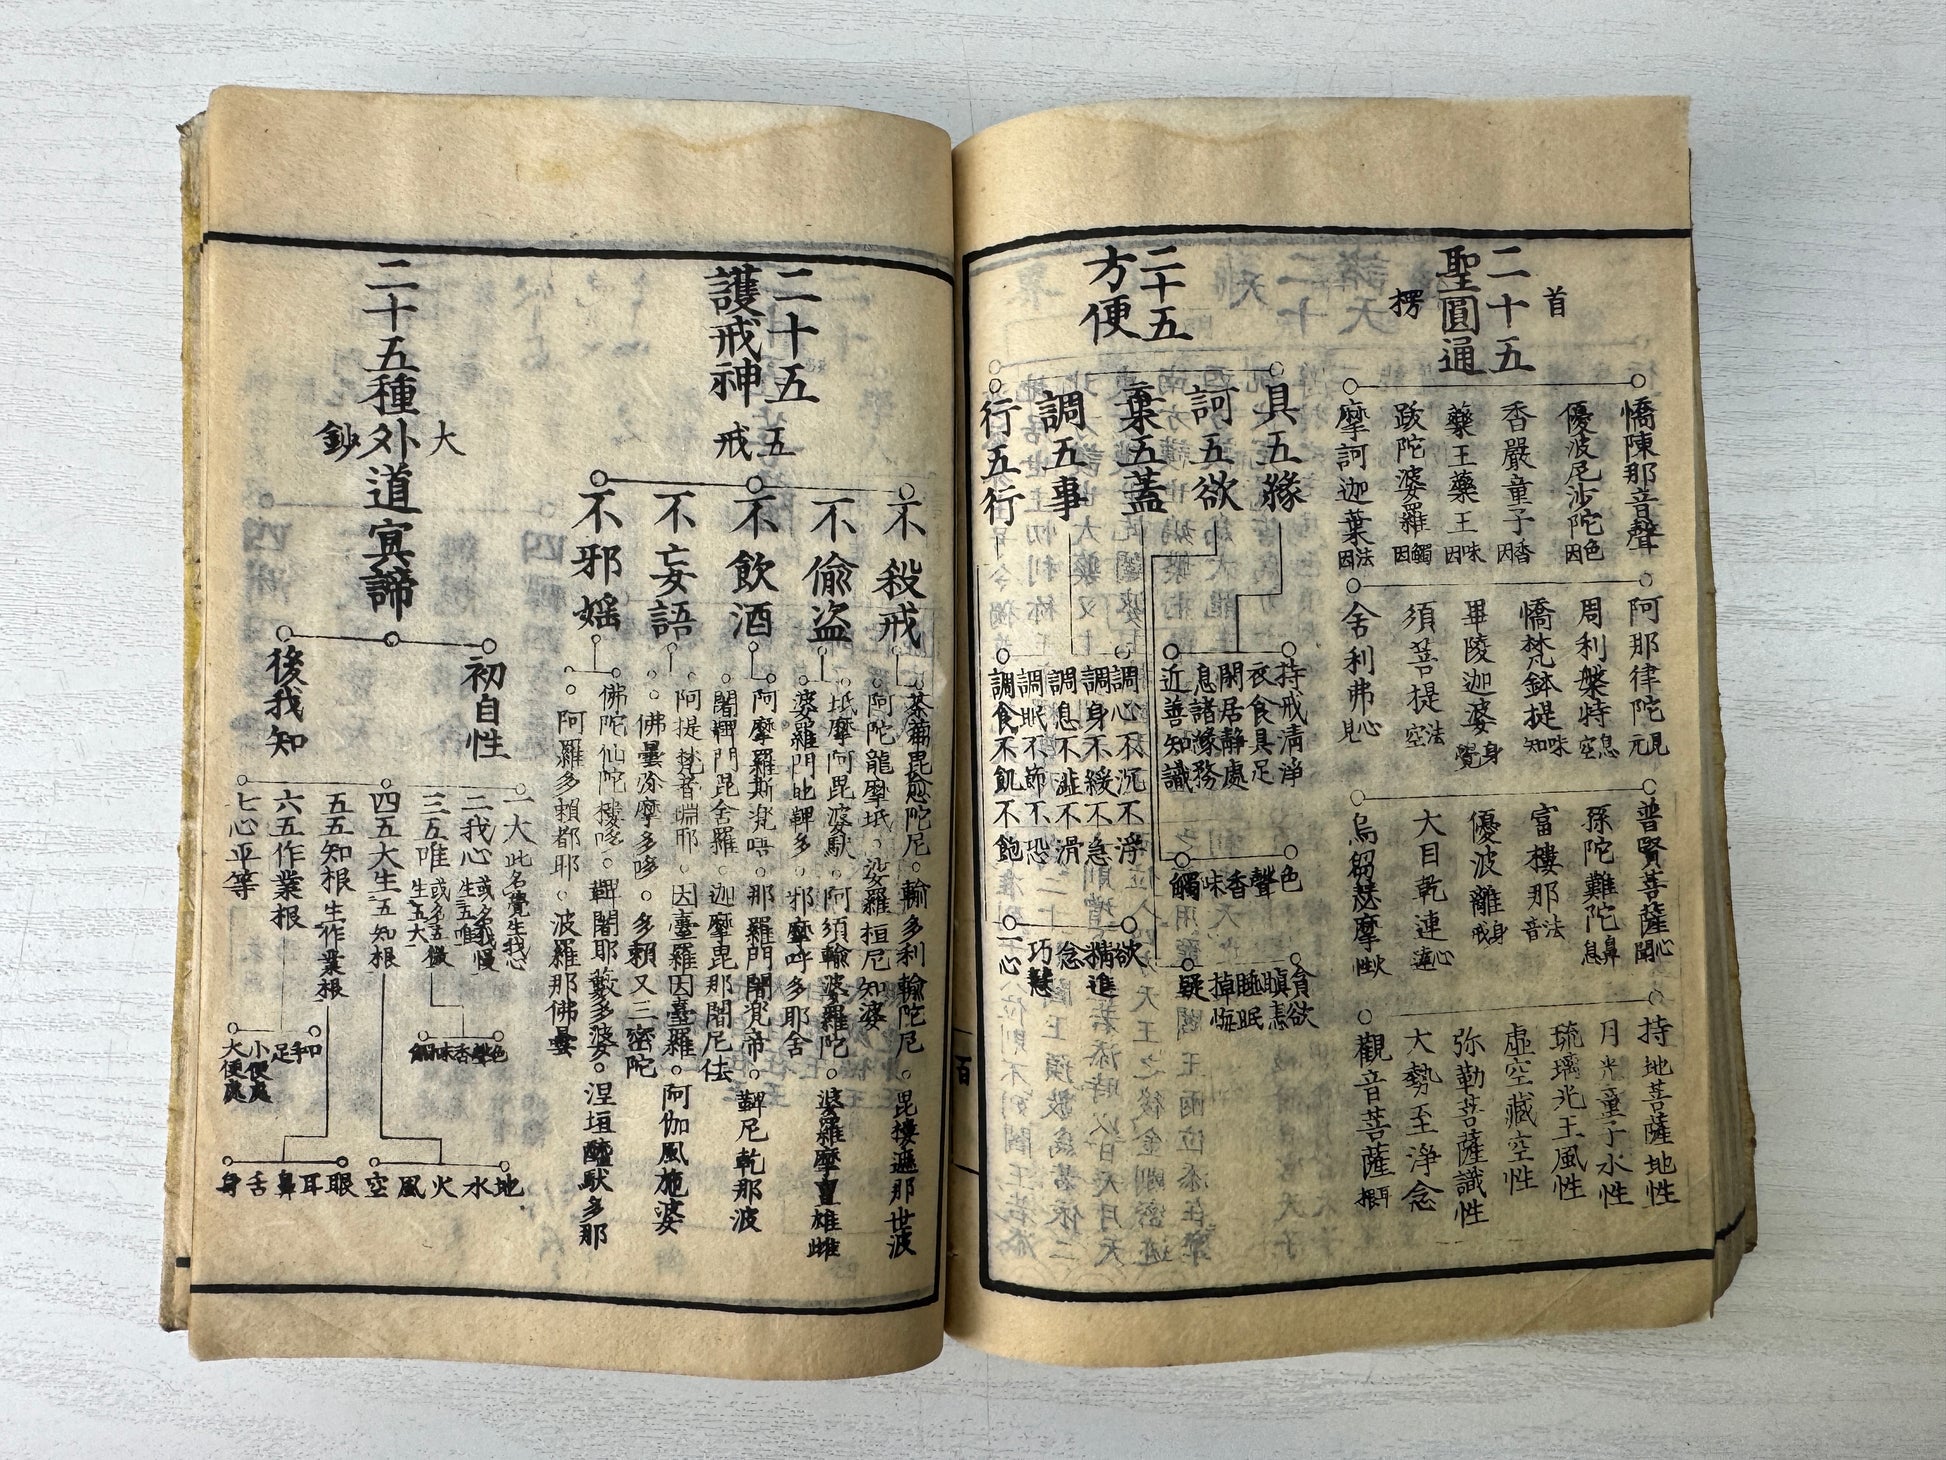 二十五
聖圓通
首
楞
憍陳那音聲
優波尼沙陀色因
香嚴童子香因
藥王藥王味因
跋陀婆羅觸因
摩訶迦葉法因
阿那律陀見元
周利槃特息空
憍梵鉢提味知
畢陵迦婆身覺
須菩提法空
舍利弗心見
普賢菩薩心聞
孫陀難陀鼻息
富樓那法音
優波離身戒
大目乾連心
烏芻瑟摩火性
持地菩薩地性
月光童子水性
琉璃光王風性
虛空藏空性
弥勒菩薩識性
大勢至淨念
觀音菩薩耳根
二十五
方便
具五緣
訶五欲
棄五蓋
調五事
行五行
持戒清淨
衣食具足
閑居靜處
息諸緣務
近善知識
調心不沉不浮
調身不緩不急
調息不澁不滑
調眠不節不恣
調食不飢不飽
色
聲
香
味
觸
貪欲
瞋恚
睡眠
掉悔
疑
欲
精進
念
巧慧
一心
二十五
護戒神
五
戒
不殺戒
不偷盗
不飲酒
不妄語
不邪婬
荼蒭毘愈陀尼○輸多利輸陀尼○毘樓遮那世波
○阿陀龍摩坻○婆羅桓尼知婆
○坻摩阿毘婆馱○阿須輪婆羅陀○婆羅摩亶雄雌
○婆羅門地鞞多○那摩呼多耶舍
阿摩羅斯兜唔○那羅門闍兜帝○鞞尼乾那波
○闍鞞門毘舍羅○迦摩毘那闍尼佉
○阿提梵者珊耶○因臺羅因臺羅○阿伽風施婆
○佛曇弥摩多哆○多賴叉三密陀
佛陀仙陀摟哆○鞞闍耶藪多婆○涅垣醯馱多那
○阿羅多賴都耶○波羅那佛曇
二十五種外道冥諦
大
鈔
初自性
後我知
一大此名覺生我心
二我心或名我慢生五唯
三五唯或名五微生五大
四五大生五知根
五五知根生作業根
六五作業根
七心平等
色
聲
香
味
觸
口
手
足
小便處
大便處
地
水
火
風
空
眼
耳
鼻
舌
身
百